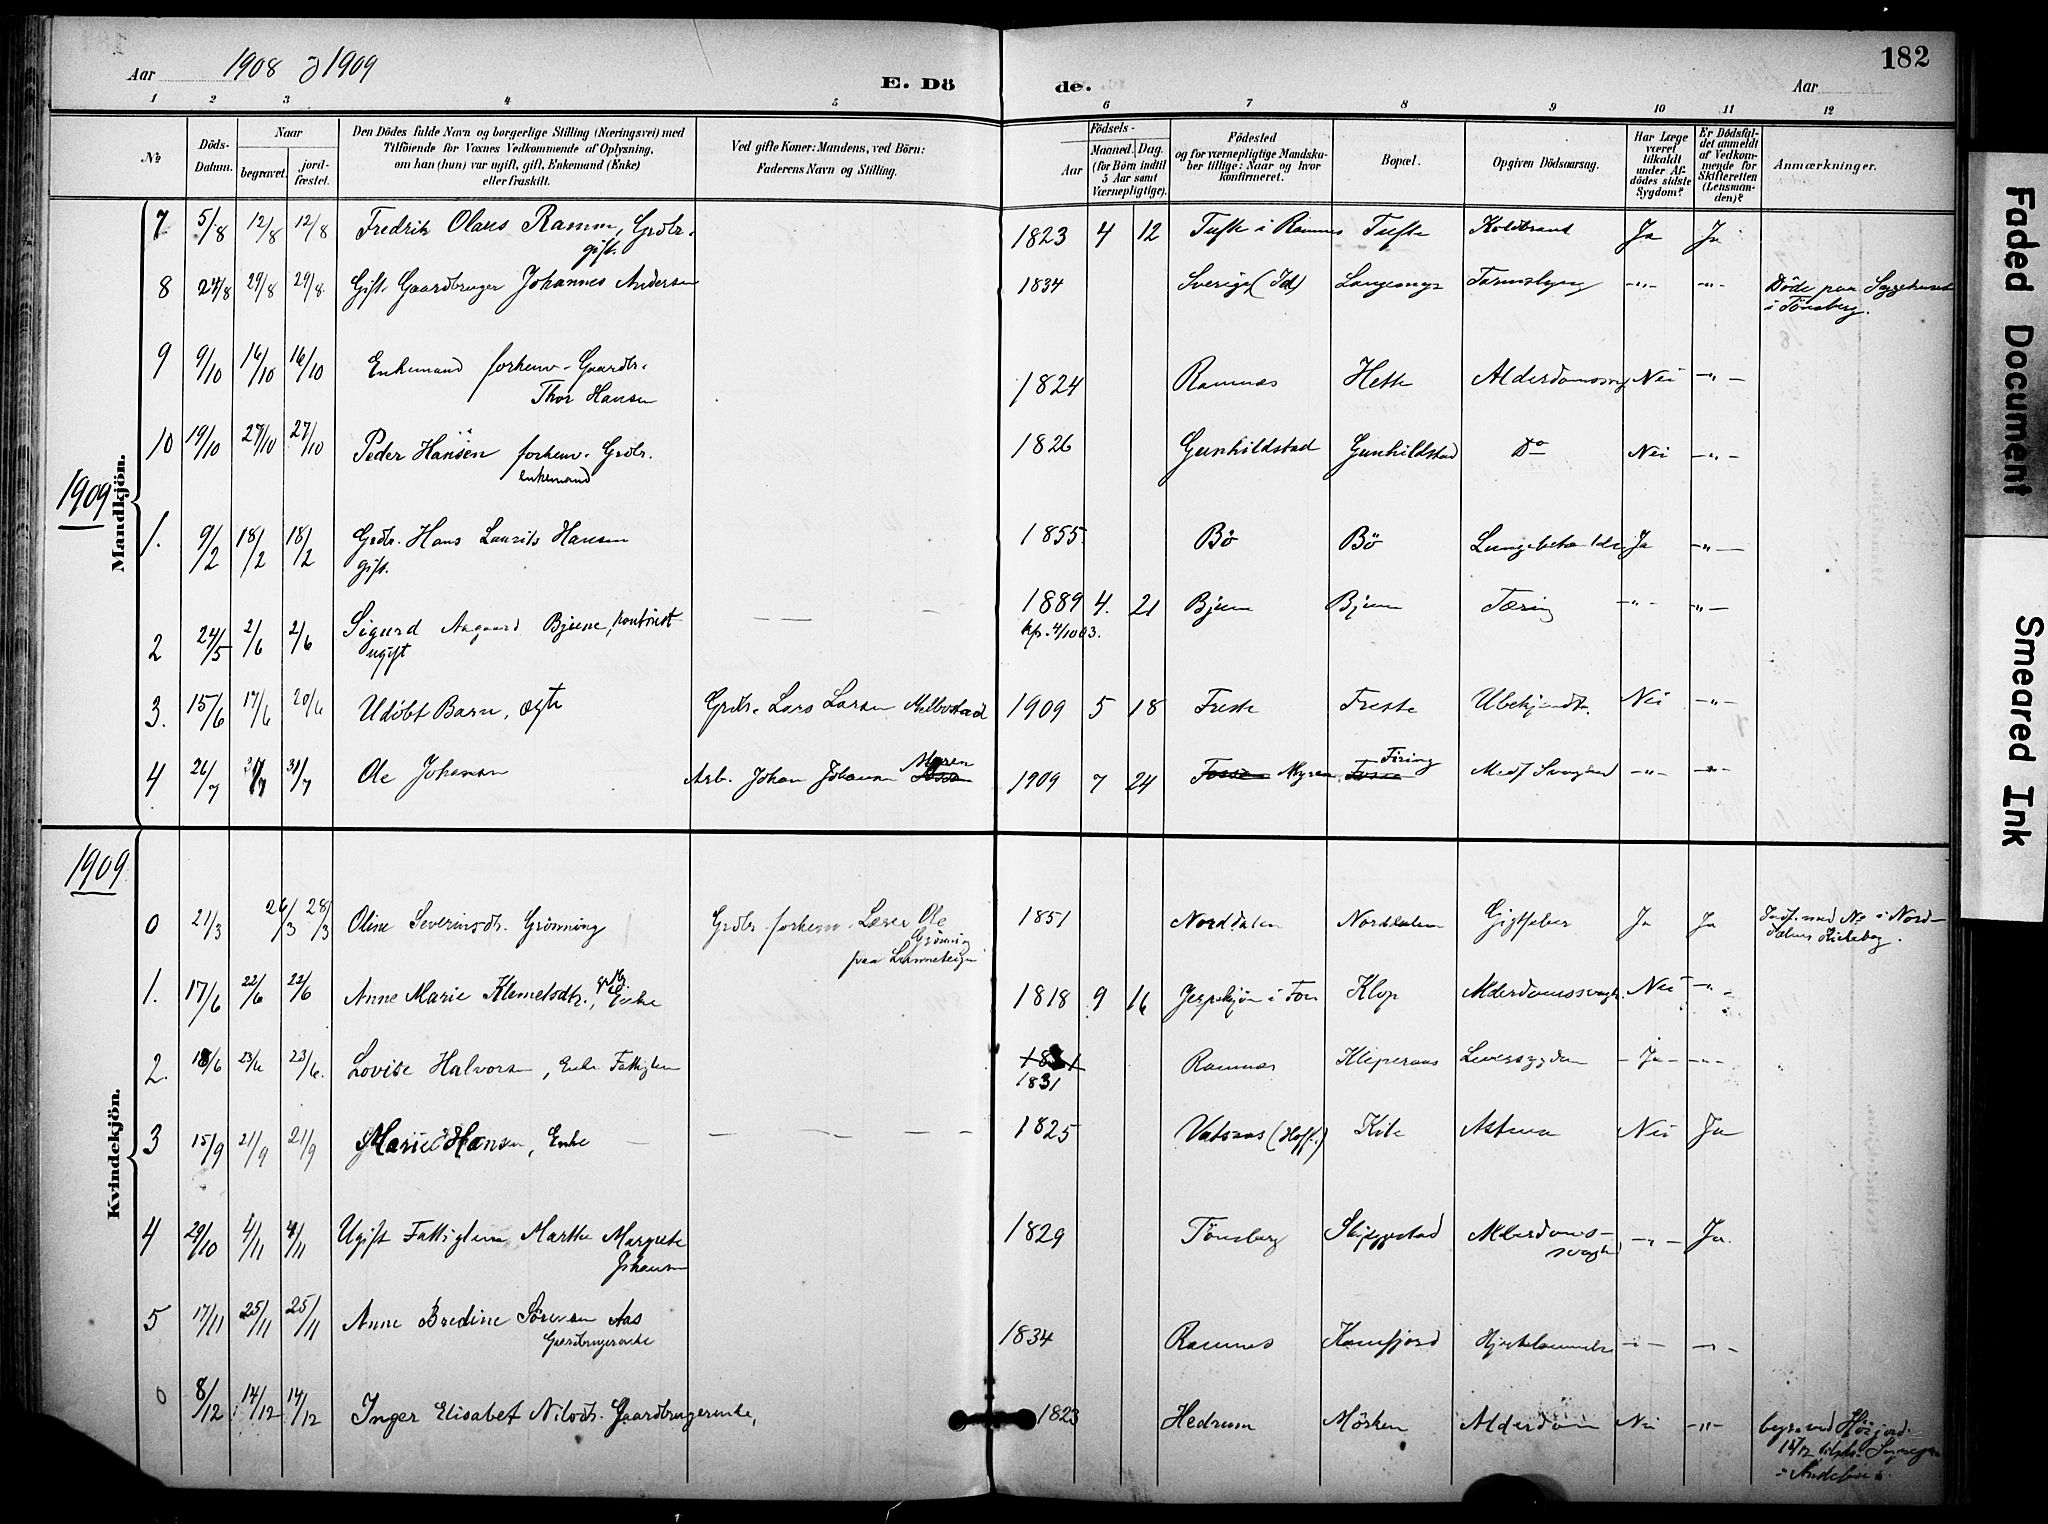 Aar 1908 & 1909
E. Döde.
Aar
182
1 2 3 4 5 6 7 8 9 10 11 12
№
Döds-Datum.
Naar
begravet.
jord-fæstet.
Den Dödes fulde Navn og borgerlige Stilling (Næringsvei) med
Tilföiende for Voxnes Vedkommende af Oplysning,
om han (hun) var ugift, gift, Enkemand (Enke)
eller fraskilt.
Ved gifte Koner: Mandens, ved Börn:
Faderens Navn og Stilling.
Födsels-
Aar
Maaned. Dag.
(for Börn indtil
5 Aar samt
Værnepligtige).
Födested
og for værnepligtige Mandska-
ber tillige: Naar og hvor
konfirmeret.
Bopæl.
Opgiven Dödsaarsag.
Har Læge
været
tilkaldt
under Af-
dödes sidste
Sygdom?
Er Dödsfal-
det anmeldt
af Vedkom-
mende for
Skifteretten
(Lensman-
den)?
Anmærkninger.
Mandkjön.
7 5/8 12/8 12/8 Fredrik Olaus Ramm, Grdbr. 1823 4 12 Tufte i Ramnes Tufte Koldbrand Ja Ja
gift.
8 27/8 29/8 29/8 Gift Gaardbruger Johannes Andersen 1834 Sverige (Id) Tarmslyng -"- -"- Döde paa Sygehuset
i Tönsberg.
9 9/10 16/10 16/10 Enkemand forhenv. Gaardbr. 1824 Ramnes Hette Alderdomssvag Nei -"-
Thor Hansen
10 19/10 27/10 27/10 Peder Hansen forhenv. Grdbr. 1826 Gunhildstad Gunhildstad Do Nei -"-
enkemand
1909
1. 9/2 18/2 18/2 Grdbr. Hans Laurits Hansen 1855 Bö Bö Ja -"-
gift.
2 24/5 2/6 2/6 Sigurd Aagaard Bjune, kontorist 1889 4. 21 Bjune Bjune Tæring -"- -"-
ugift
kfr. 4/10 03.
3. 15/6 17/6 20/6 Udöbt Barn, ægte Grdbr. Lars Larsen 1909 5 18 Freste Freste Ubekjendt. Nei -"-
4 26/7 31/7 31/7 Ole Johansen Arb. Johan Johansen Myren 1909 7 24 Myren Firing Medf. Svaghed -"- -"-
1909
Kvindekjön.
0 21/3 26/3 28/3 Oline Severinsdt. Grönning Grdbr. forhenv. Lærer Ole 1851 Norddalen Norddalen Gigtfeber Ja Ja Indf. med No i Nord-
Grönning
paa
dalens Kirkebog.
1. 17/6 22/6 22/6 Anne Marie Klemetsdtr., Enke 1818 9 16 i Fon Klop Alderdomssvagh. Nei -"-
2. 18/6 23/6 23/6. Lovise Halvorsen, Enke Fattiglem 1831 Ramnes Kleperaas Leversygdom Ja -"-
3 15/9 21/9 21/9 Marie Hansen, Enke 1825 Vataas (Hoff.) Kile Astma Nei Ja
4 29/10 4/11 4/11 Ugift Fattiglem Marthe Margrete 1829 Tönsberg Skjeggestad Alderdoms- -"- Ja.
Johansen
svaghed
5 17/11 25/11 25/11 Anne Bredine Sörensen Aas 1834 Ramnes Hjertelammelse -"- -"-
Gaardbrugerenke
0 8/12 14/12 14/12 Inger Elisabet Nilsdt. Gaardbrugerenke, 1823 Hedrum Mörken Alderdom Nei -"- begr. ved Höijord
14/12
i Andebu.
Faded Document
Smeared Ink